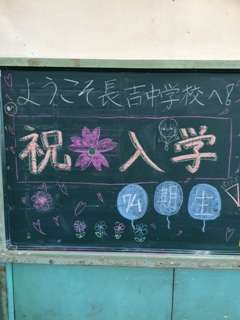 ようこそ長吉中学校へ!
祝入学
74期生